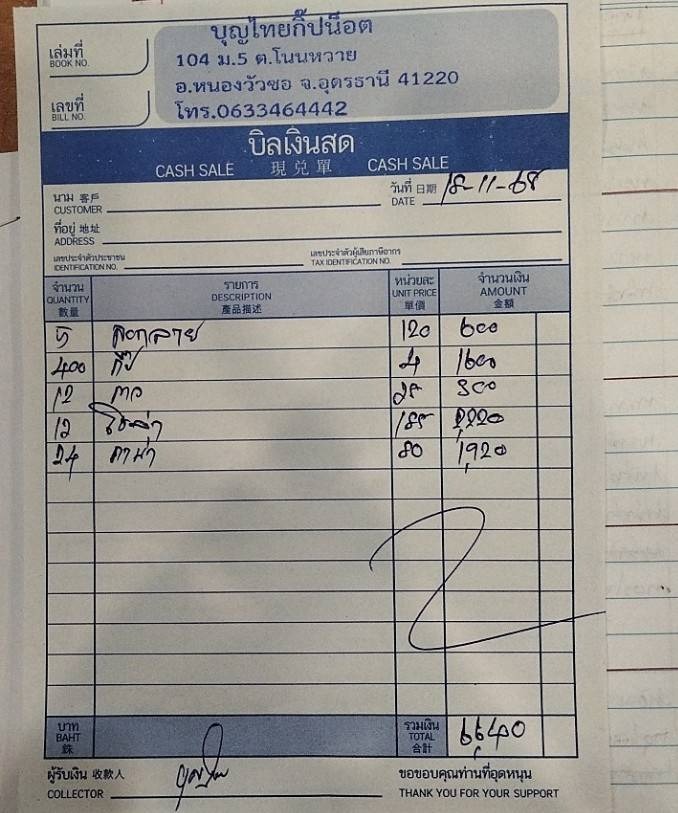 บุญไทยกิ๊ปน็อต
104 ม.5 ต.โนนหวาย
อ.หนองวัวซอ จ.อุดรธานี 41220
โทร.0633464442
เล่มที่
BOOK NO.
เลขที่
BILL NO.
บิลเงินสด
CASH SALE 現兌單 CASH SALE
นาม 客戶
CUSTOMER
วันที่ 日期 18-11-68
DATE
ที่อยู่ 地址
ADDRESS
เลขประจำตัวประชาชน
IDENTIFICATION NO.
เลขประจำตัวผู้เสียภาษีอากร
TAX IDENTIFICATION NO.
จำนวน รายการ หน่วยละ จำนวนเงิน
QUANTITY DESCRIPTION UNIT PRICE AMOUNT
數量 產品描述 單價 金額
5 120 600
400 กิ๊ป 4 1600
12 25 300
12 185 2,220
24 80 1,920
บาท รวมเงิน
BAHT TOTAL 6,640
銖 合計
ผู้รับเงิน 收款人
COLLECTOR
ขอขอบคุณท่านที่อุดหนุน
THANK YOU FOR YOUR SUPPORT